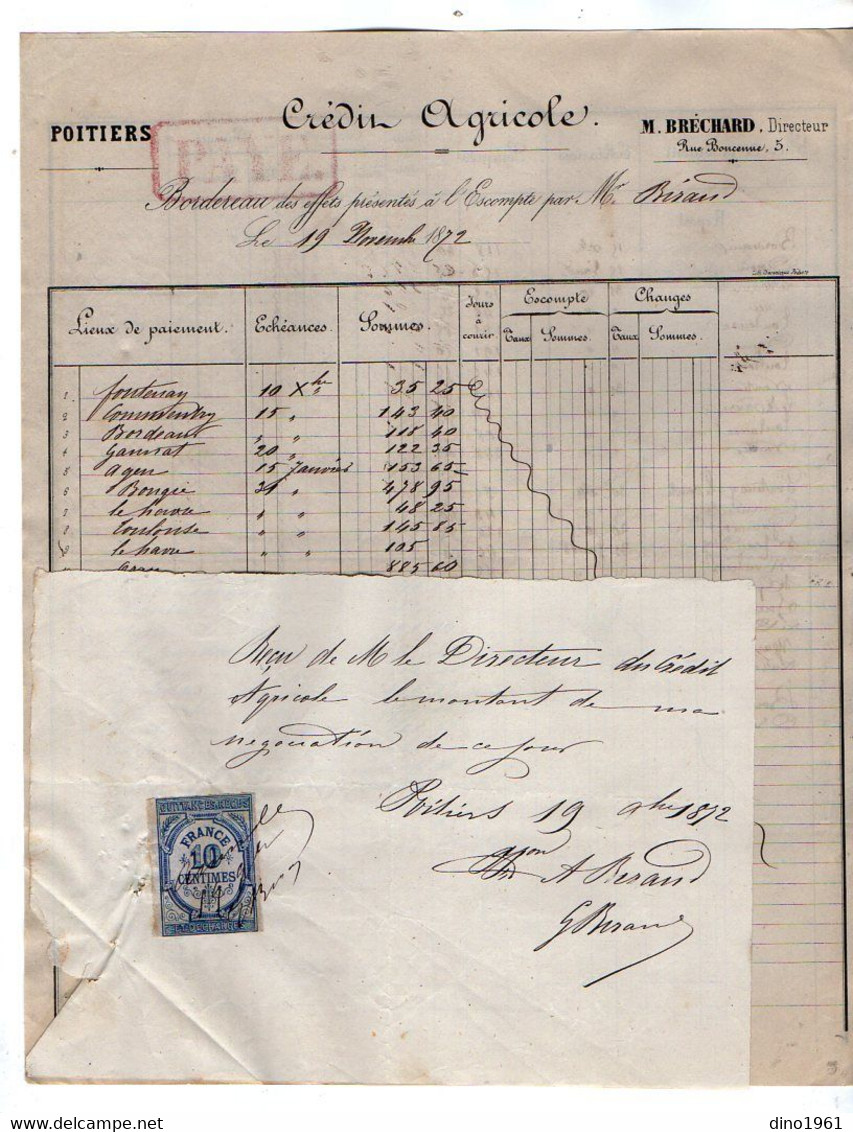 POITIERS
Crédit Agricole.
M. BRÉCHARD, Directeur
Rue Boncenne, 5.
PAYÉ
Bordereau des effets présentés à l'Escompte par Mr Béraud
Le 19 Novembre 1872
Lieux de paiement. Echéances. Sommes. Jours à courir. Escompte Taux Sommes. Changes Taux Sommes.
1 fontenay 10 Xbre 35 25
2 Commentry 15 " 143 40
3 Bordeaux " " 118 40
4 Gannat 20 " 122 35
5 agen 15 Janvier 153 65
6 Bougie 31 " 478 95
7 le havre " " 48 25
8 Toulouse " " 145 85
9 le havre " " 105
885 60
Reçu de M le Directeur du Crédit
Agricole le montant de ma
negociation de ce jour
Poitiers 19 9bre 1872
A Beraud
G Beraud
QUITTANCES, REÇUS
FRANCE
10
CENTIMES
ET DÉCHARGES
dino1961